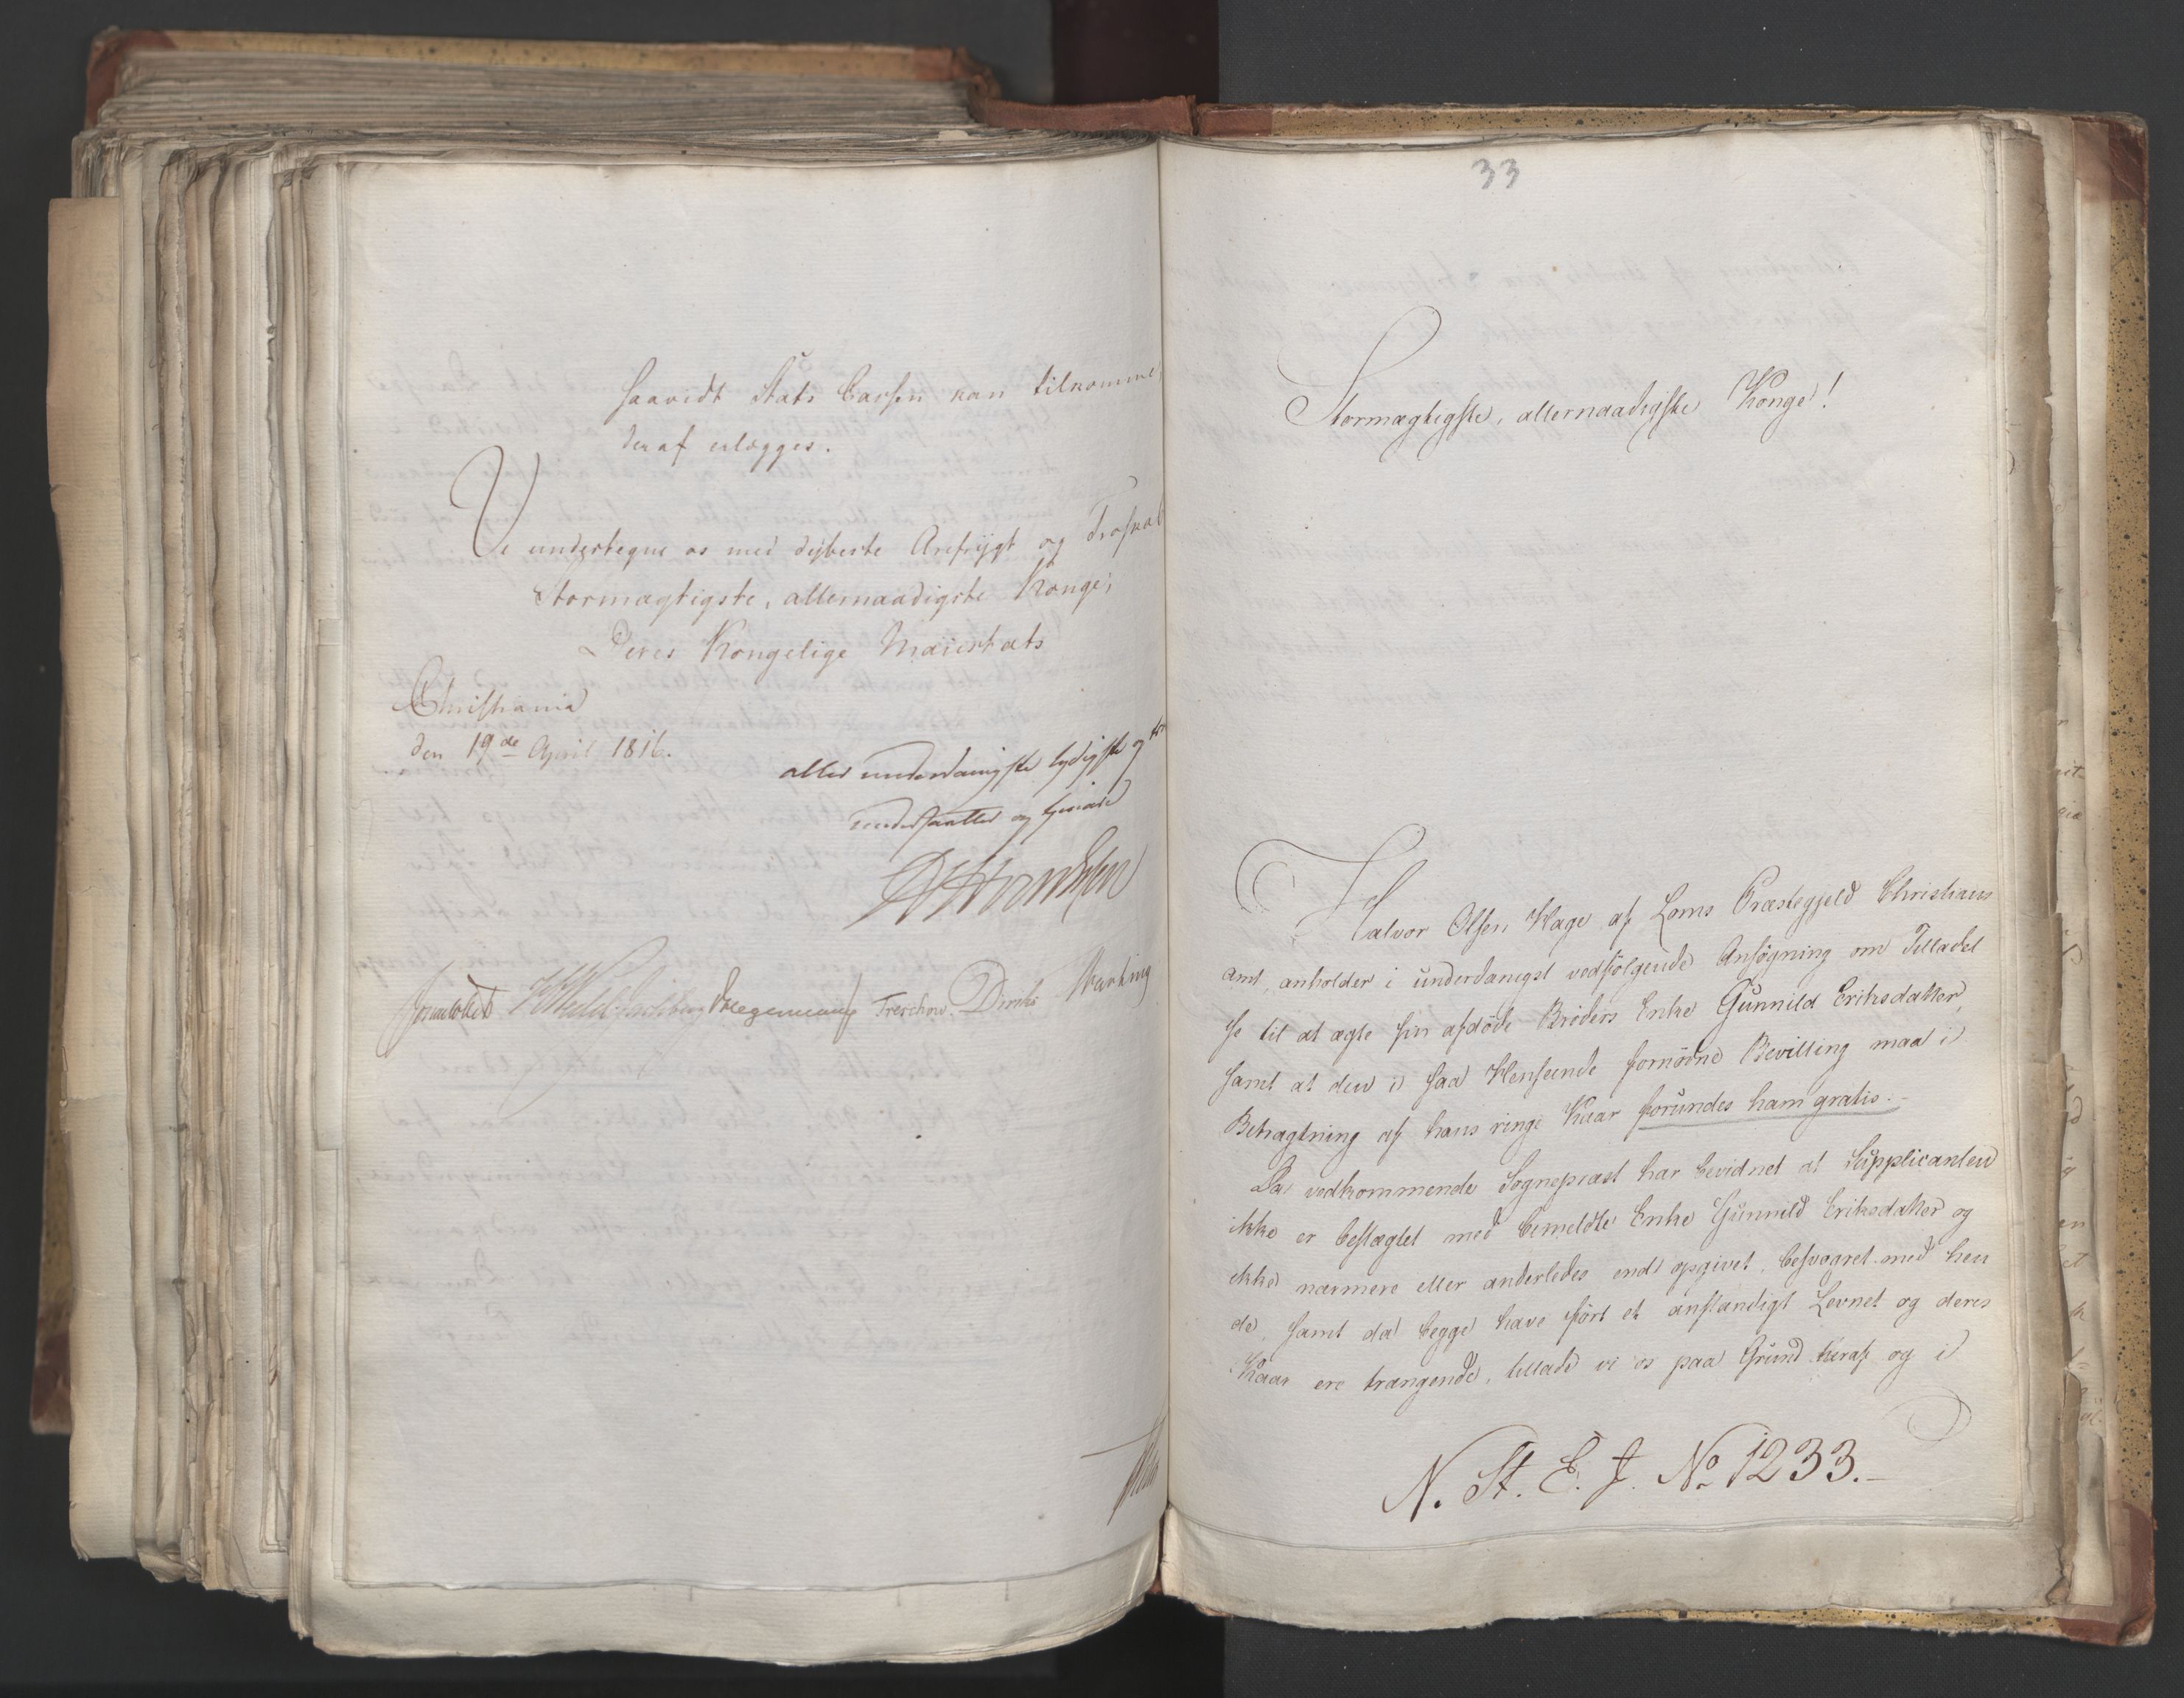 saavidt Stats Cassen kan tilkomme
deraf erlægges.
Vi undertegne os med dybeste Ærefrygt og Troskab
Stormægtigste, allernaadigste Konge,
Deres Kongelige Maiestæts
Christiania
den 19de April 1816.
allerunderdanigste lydigste og
undersaatter og tienere
Sommerhielm Wedel Jarlsberg Hegermann Treschow. Diriks Motzfeldt
33
Stormægtigste, allernaadigste Konge!
Halvor Olsen Hage af Loms Præstegjeld Christians
Amt, anholder i underdanigst vedfølgende Ansøgning om Tilladel
se til at ægte sin afdøde Broders Enke Gunnild Eriksdatter,
samt at den i saa Henseende fornødne Bevilling maa i
Betragtning af hans ringe Kaar forundes ham gratis.-
Da vedkommende Sognepræst har bevidnet at Supplicanten
ikke er beslægtet med bemeldte Enke Gunnild Eriksdatter og
ikke nærmere eller anderledes end opgivet besvogret med hen
de, samt da begge have ført et anstændigt Levnet og deres
Kaar ere trængende, tillade vi os paa Grund heraf og i
N. St. E. J. No 1233.-